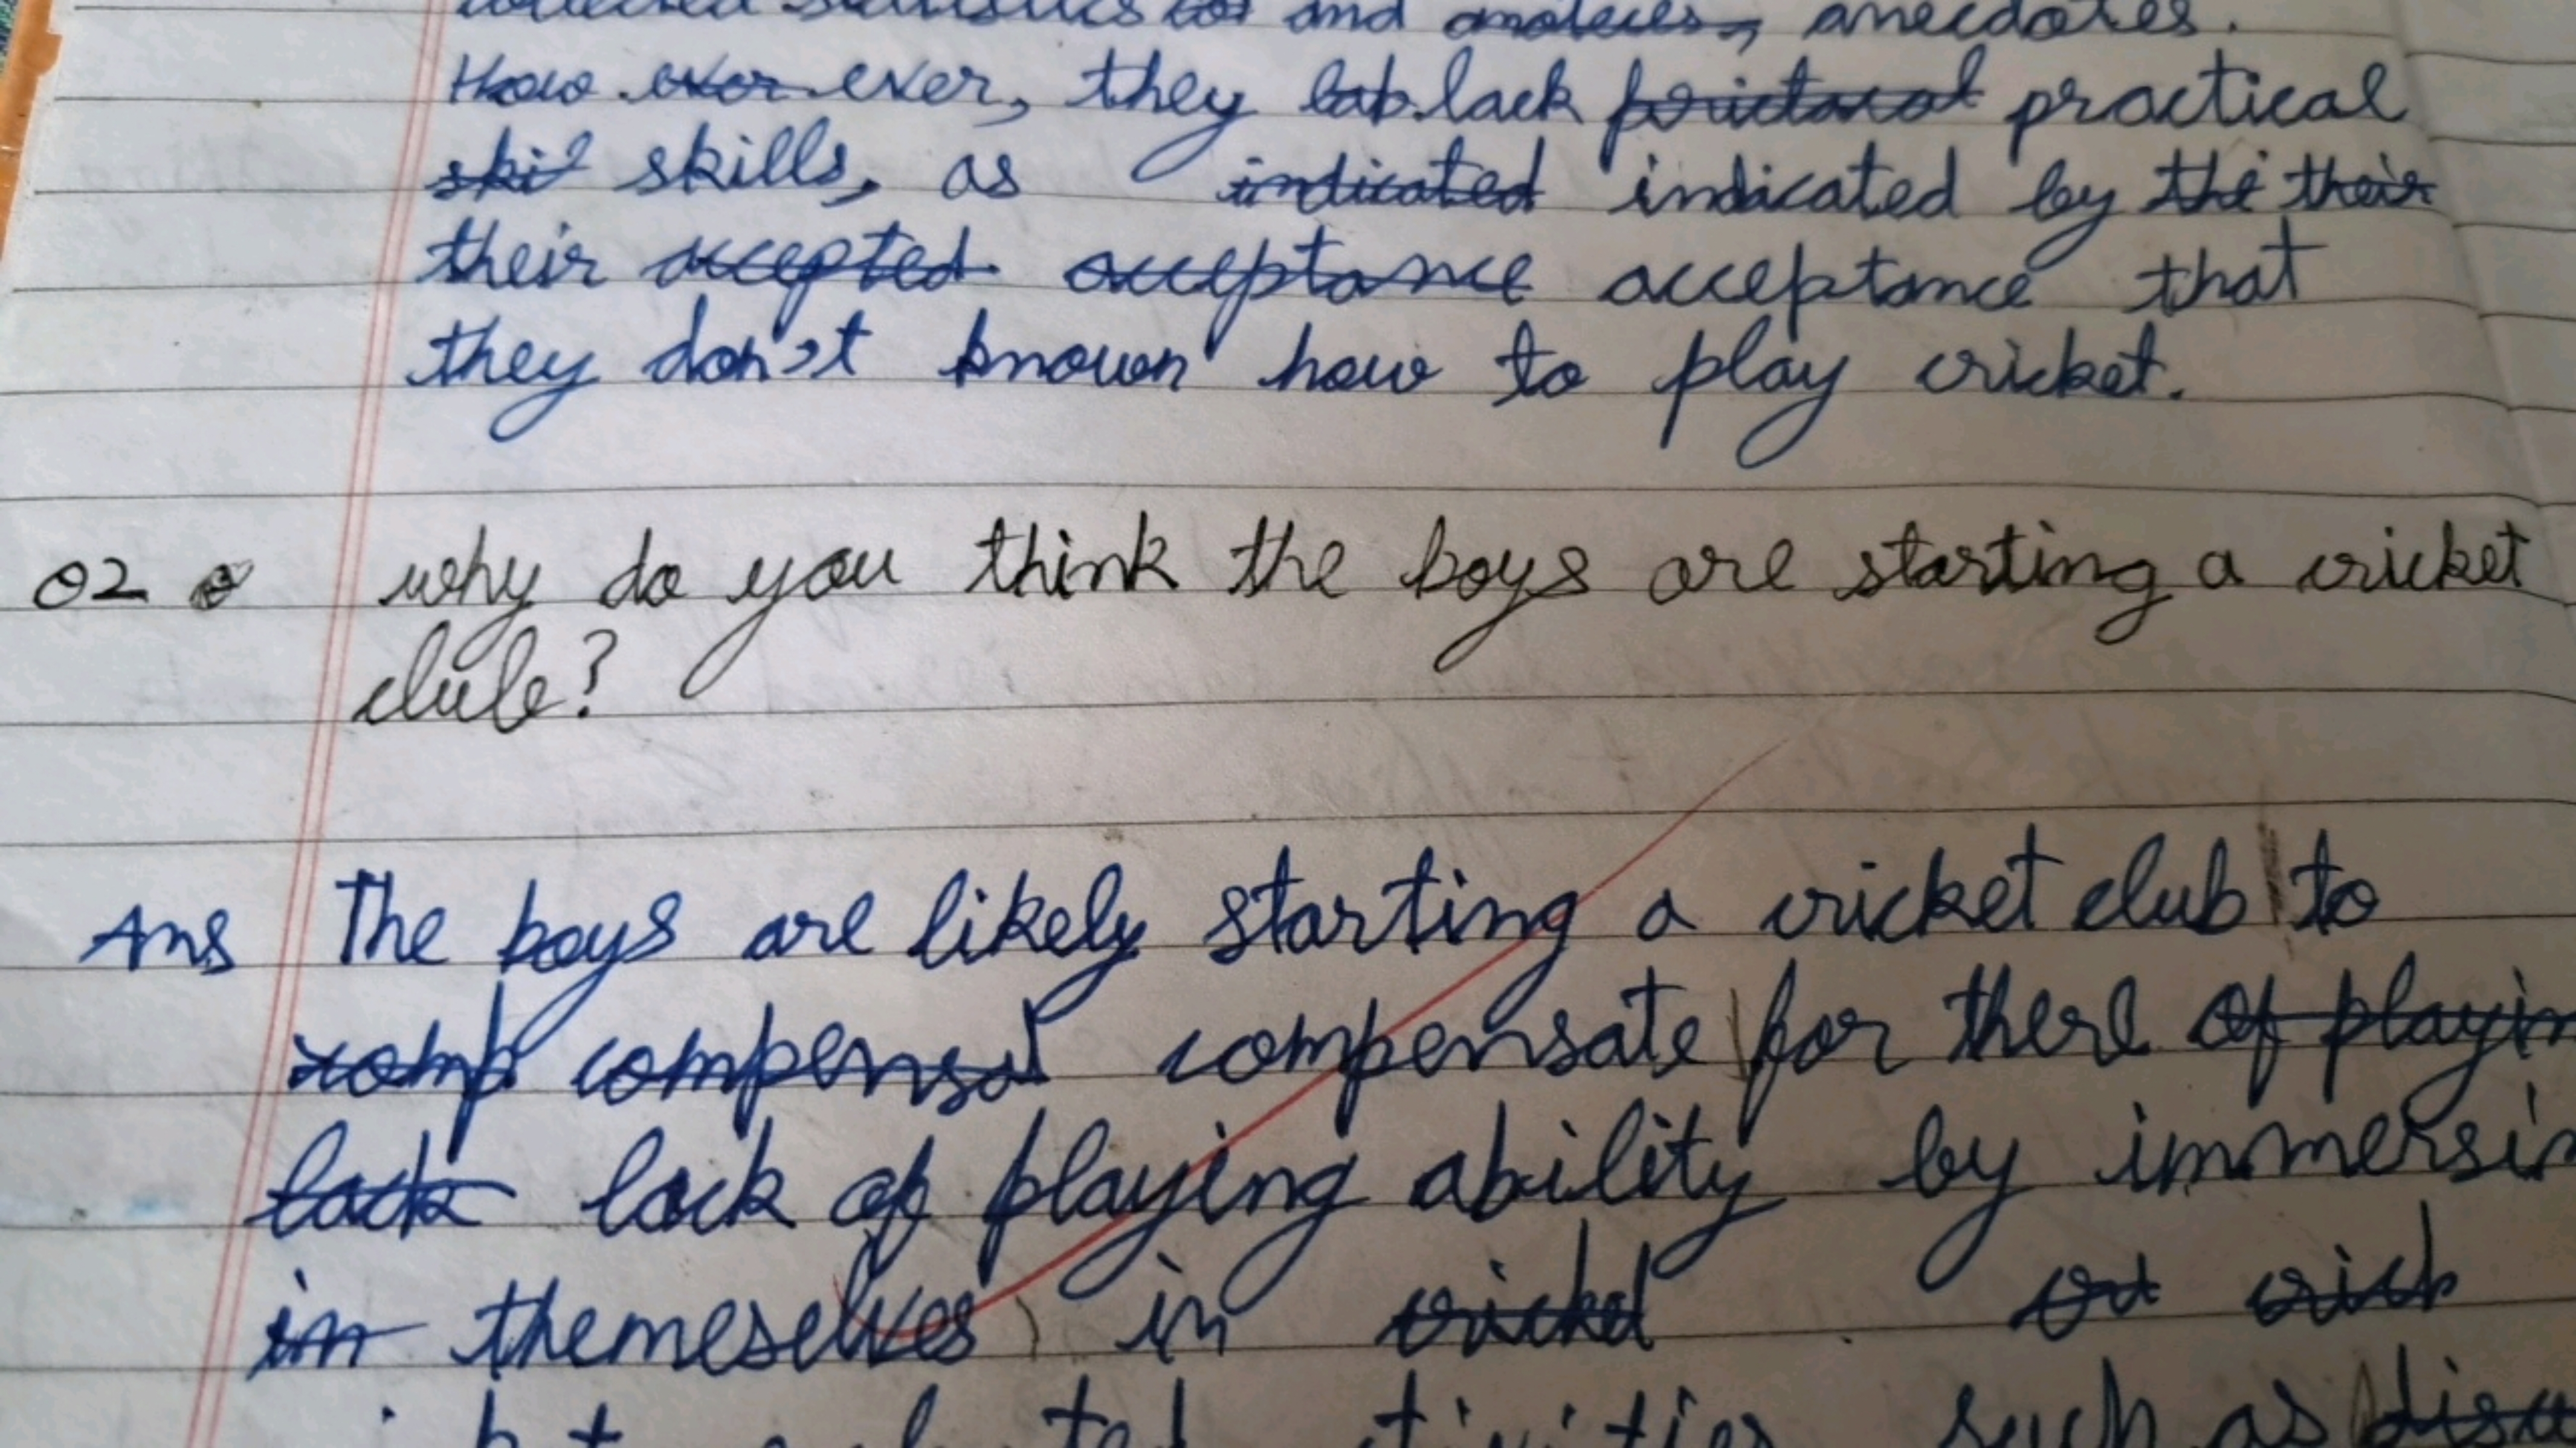 collected statistics and anecdotes.
How ever, they lack practical
skills, as indicated by
their acceptance that
they don't known how to play cricket.
02 why do you think the boys are starting a cricket
club?
Ans The boys are likely starting a cricket club to
compensate for there
lack of playing ability by immersin
themeselves in
such as